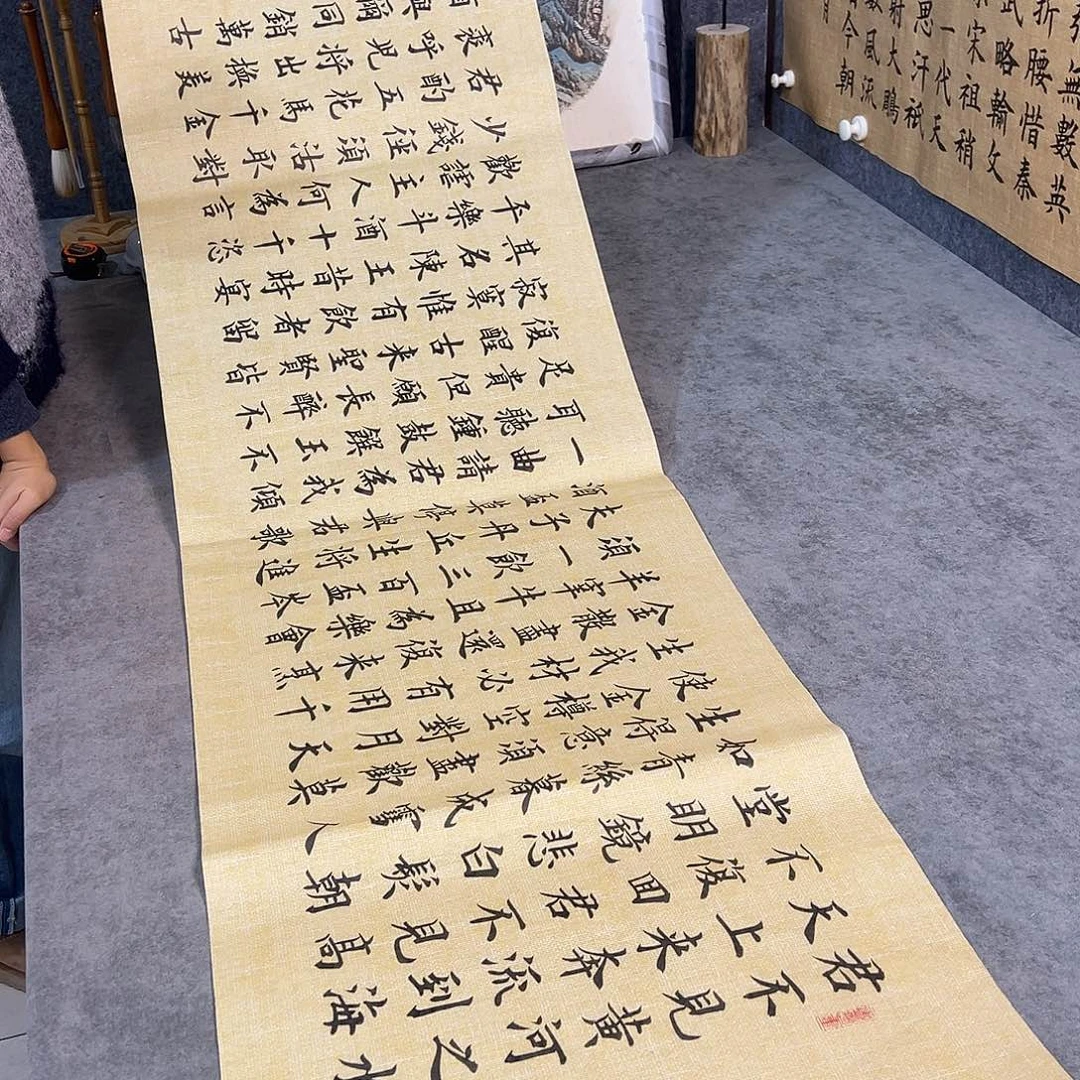 君不見黄河之水
天上来奔流到海
不復回君不見高
堂明鏡悲白髮朝
如青絲暮成雪人
生得意須盡歡莫
使金樽空對月天
生我材必有用千
金散盡還復来烹
羊宰牛且為樂會
須一飲三百盃岑
夫子丹丘生將進
酒盃莫停與君歌
一曲請君為我傾
耳聽鍾鼓饌玉不
足貴但願長醉不
復醒古来聖賢皆
寂寞惟有飲者留
其名陳王昔時宴
平樂斗酒十千恣
歡謔主人何為言
少錢徑須沽取對
君酌五花馬千金
裘呼兒將出換美
與爾同銷萬古
無數英
折腰惜秦
武略輸文
宋祖稍
一代天
思汗祇
射大鵰
風流
今朝
月